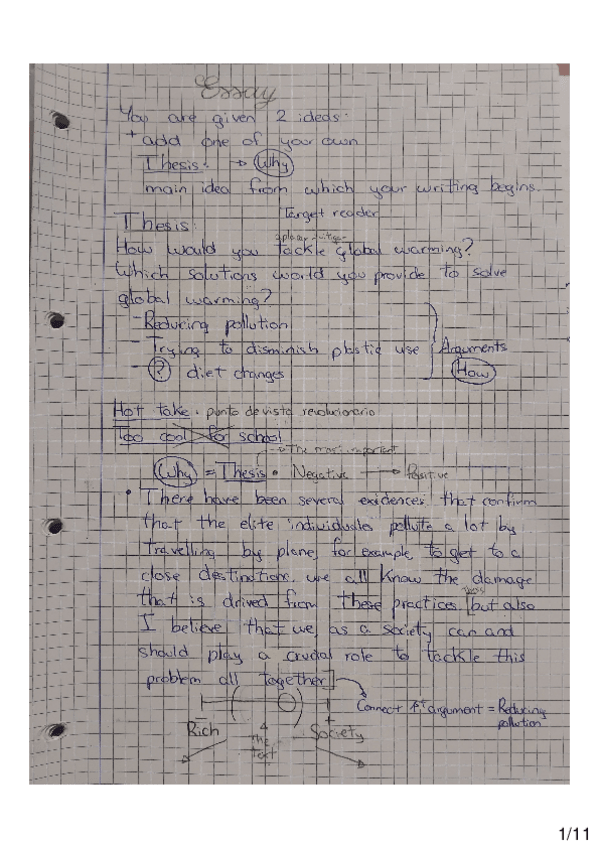 Essay
You are given 2 ideas.
+ add one of your own
Thesis: → Why
main idea from which your writing begins.
Target reader
Thesis
How would you tackle global warming?
Which solutions world you provide to solve
global warming?
- Reducing pollution
- Trying to disminish plastic use
Arguments
? diet changes
How
Hot take. punto de vista revolucionario
Too cool for school
The most important
Why = Thesis • Negative → Positive
• There have been several evidences that confirm
that the elite individuals pollute a lot by
travelling by plane, for example to get to a
close destination. we all know the damage
that is drived from these practices [but also
I believe that we, as a society can and
should play a crucial role to tackle this
problem all together]
Connect 1st argument = Reducing
pollution
- +
Rich The Text Society
1/11